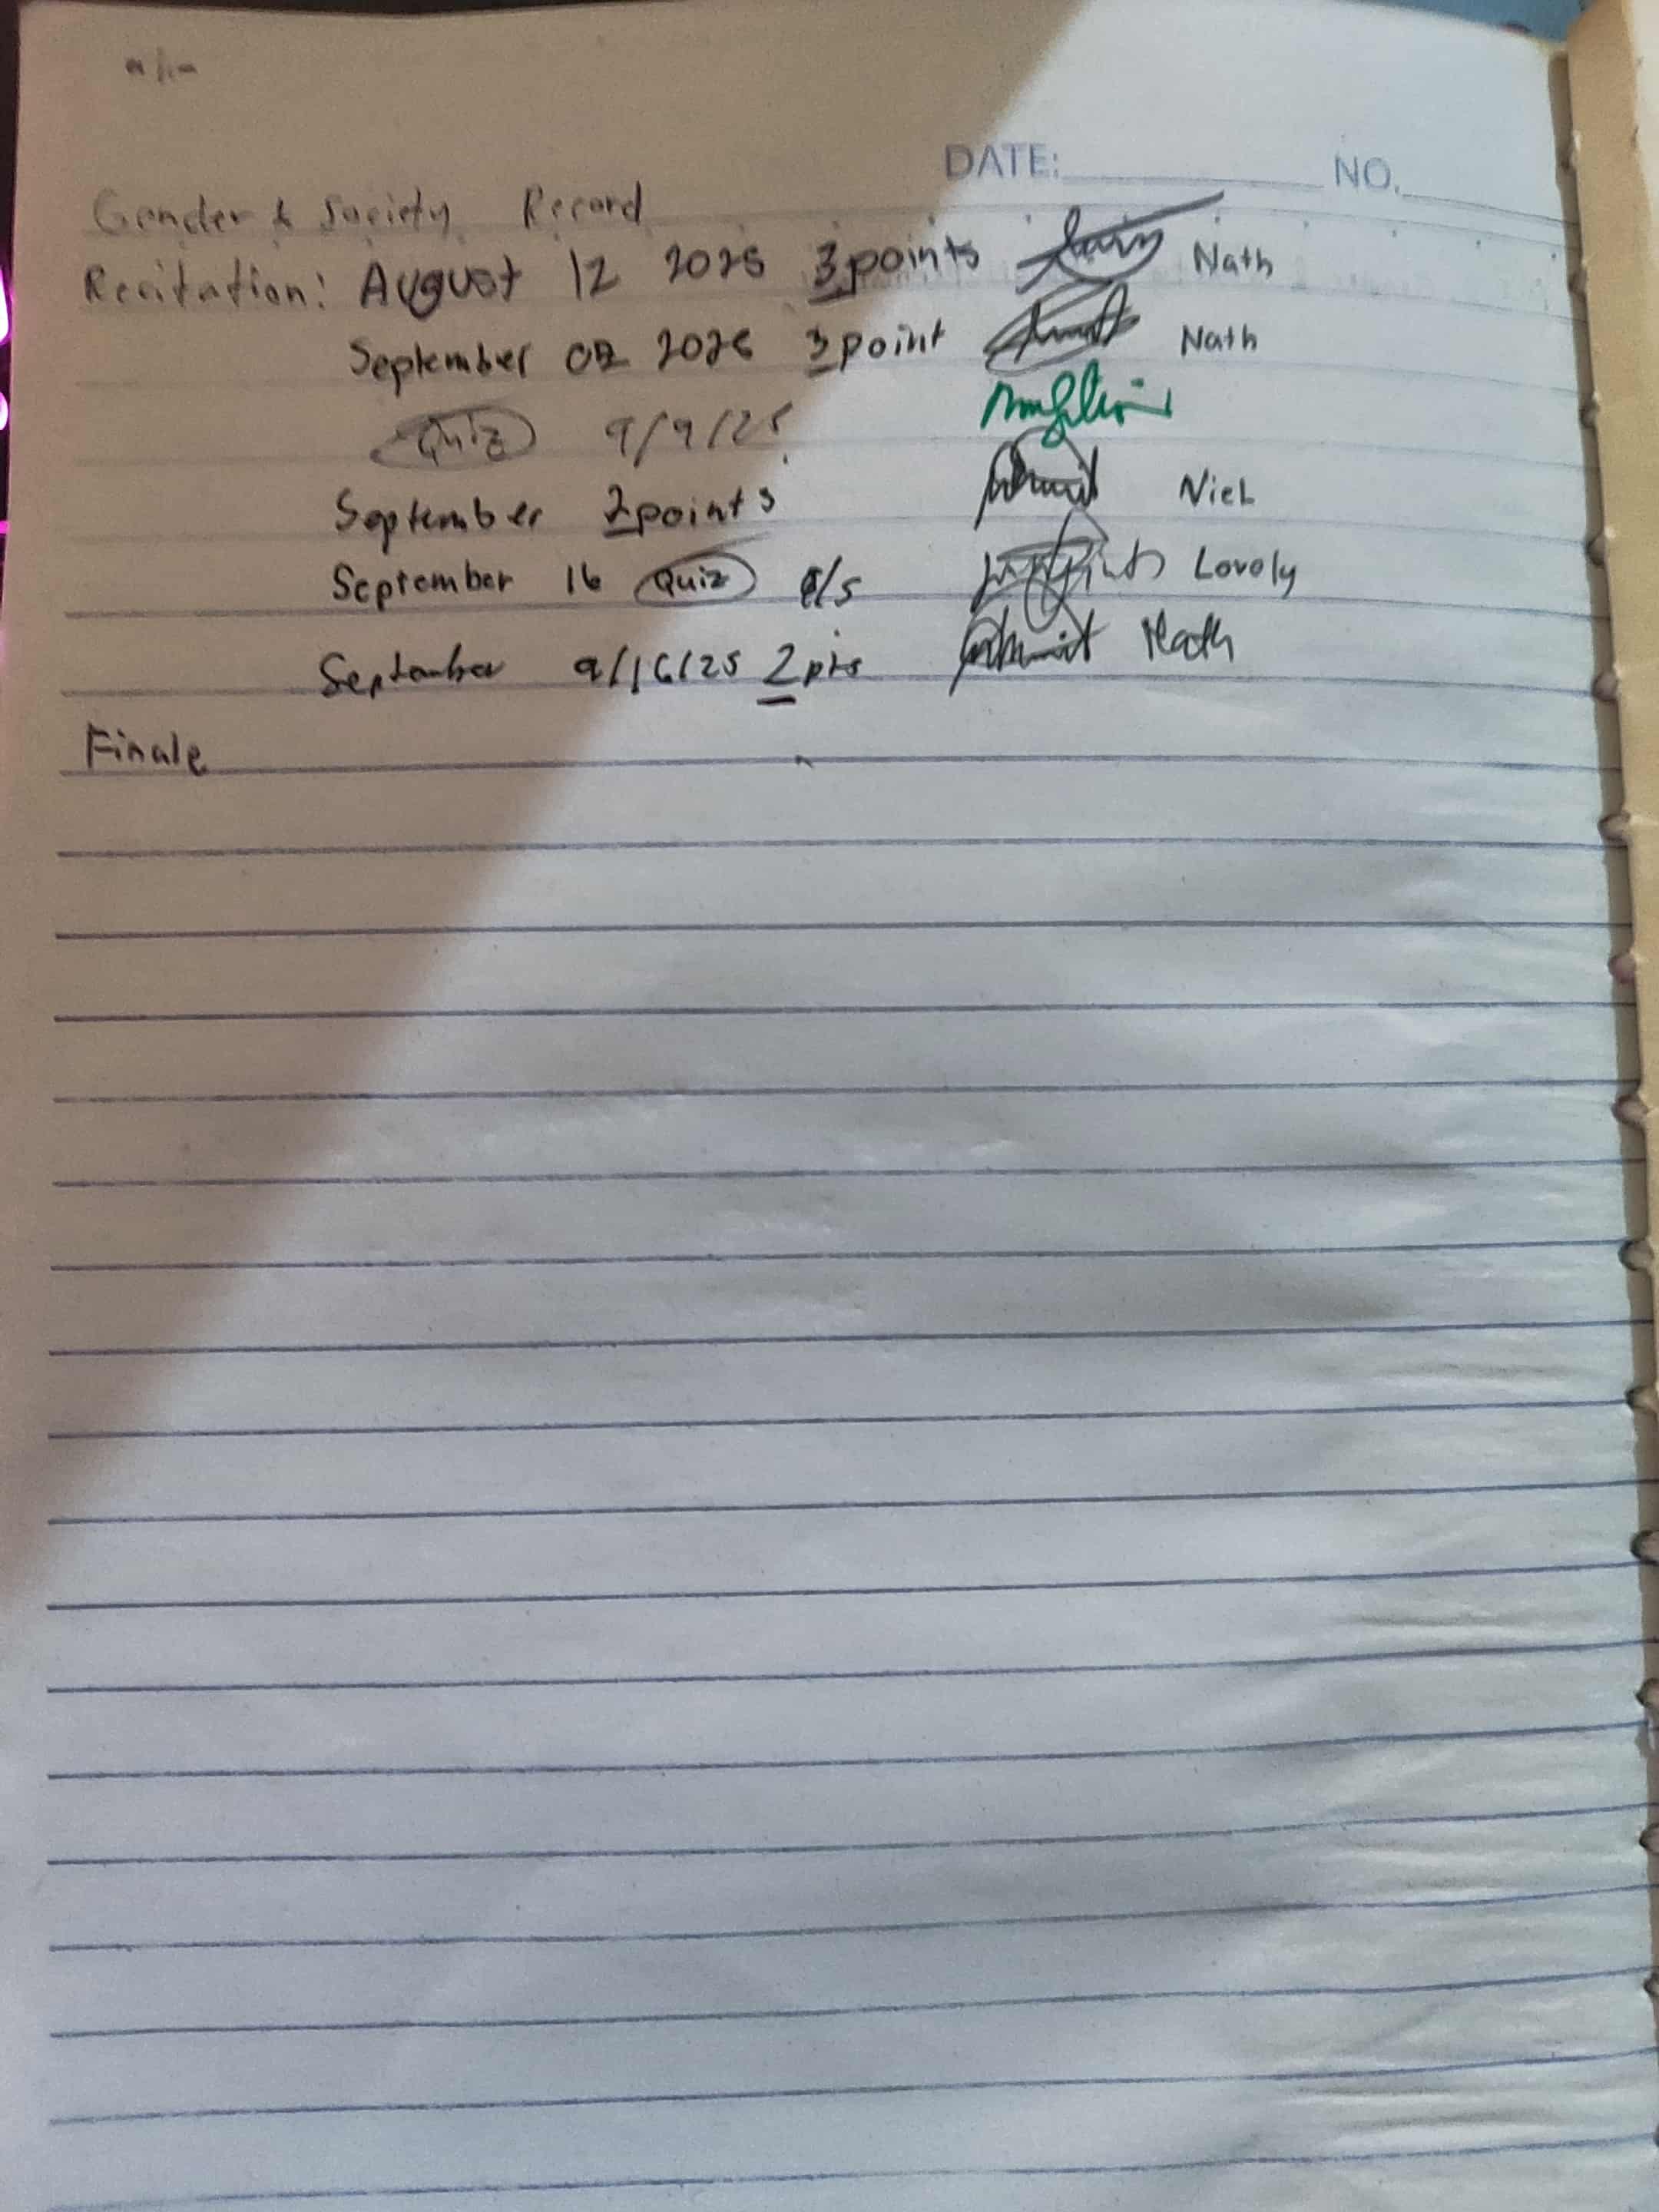 DATE: NO.
Gender & Society Record
Recitation: August 12 2025 3points Nath
September 02 2025 3point Nath
Quiz 9/9/25
September 2points Niel
September 16 Quiz /5 Lovely
September 9/16/25 2pts Nath
Finale